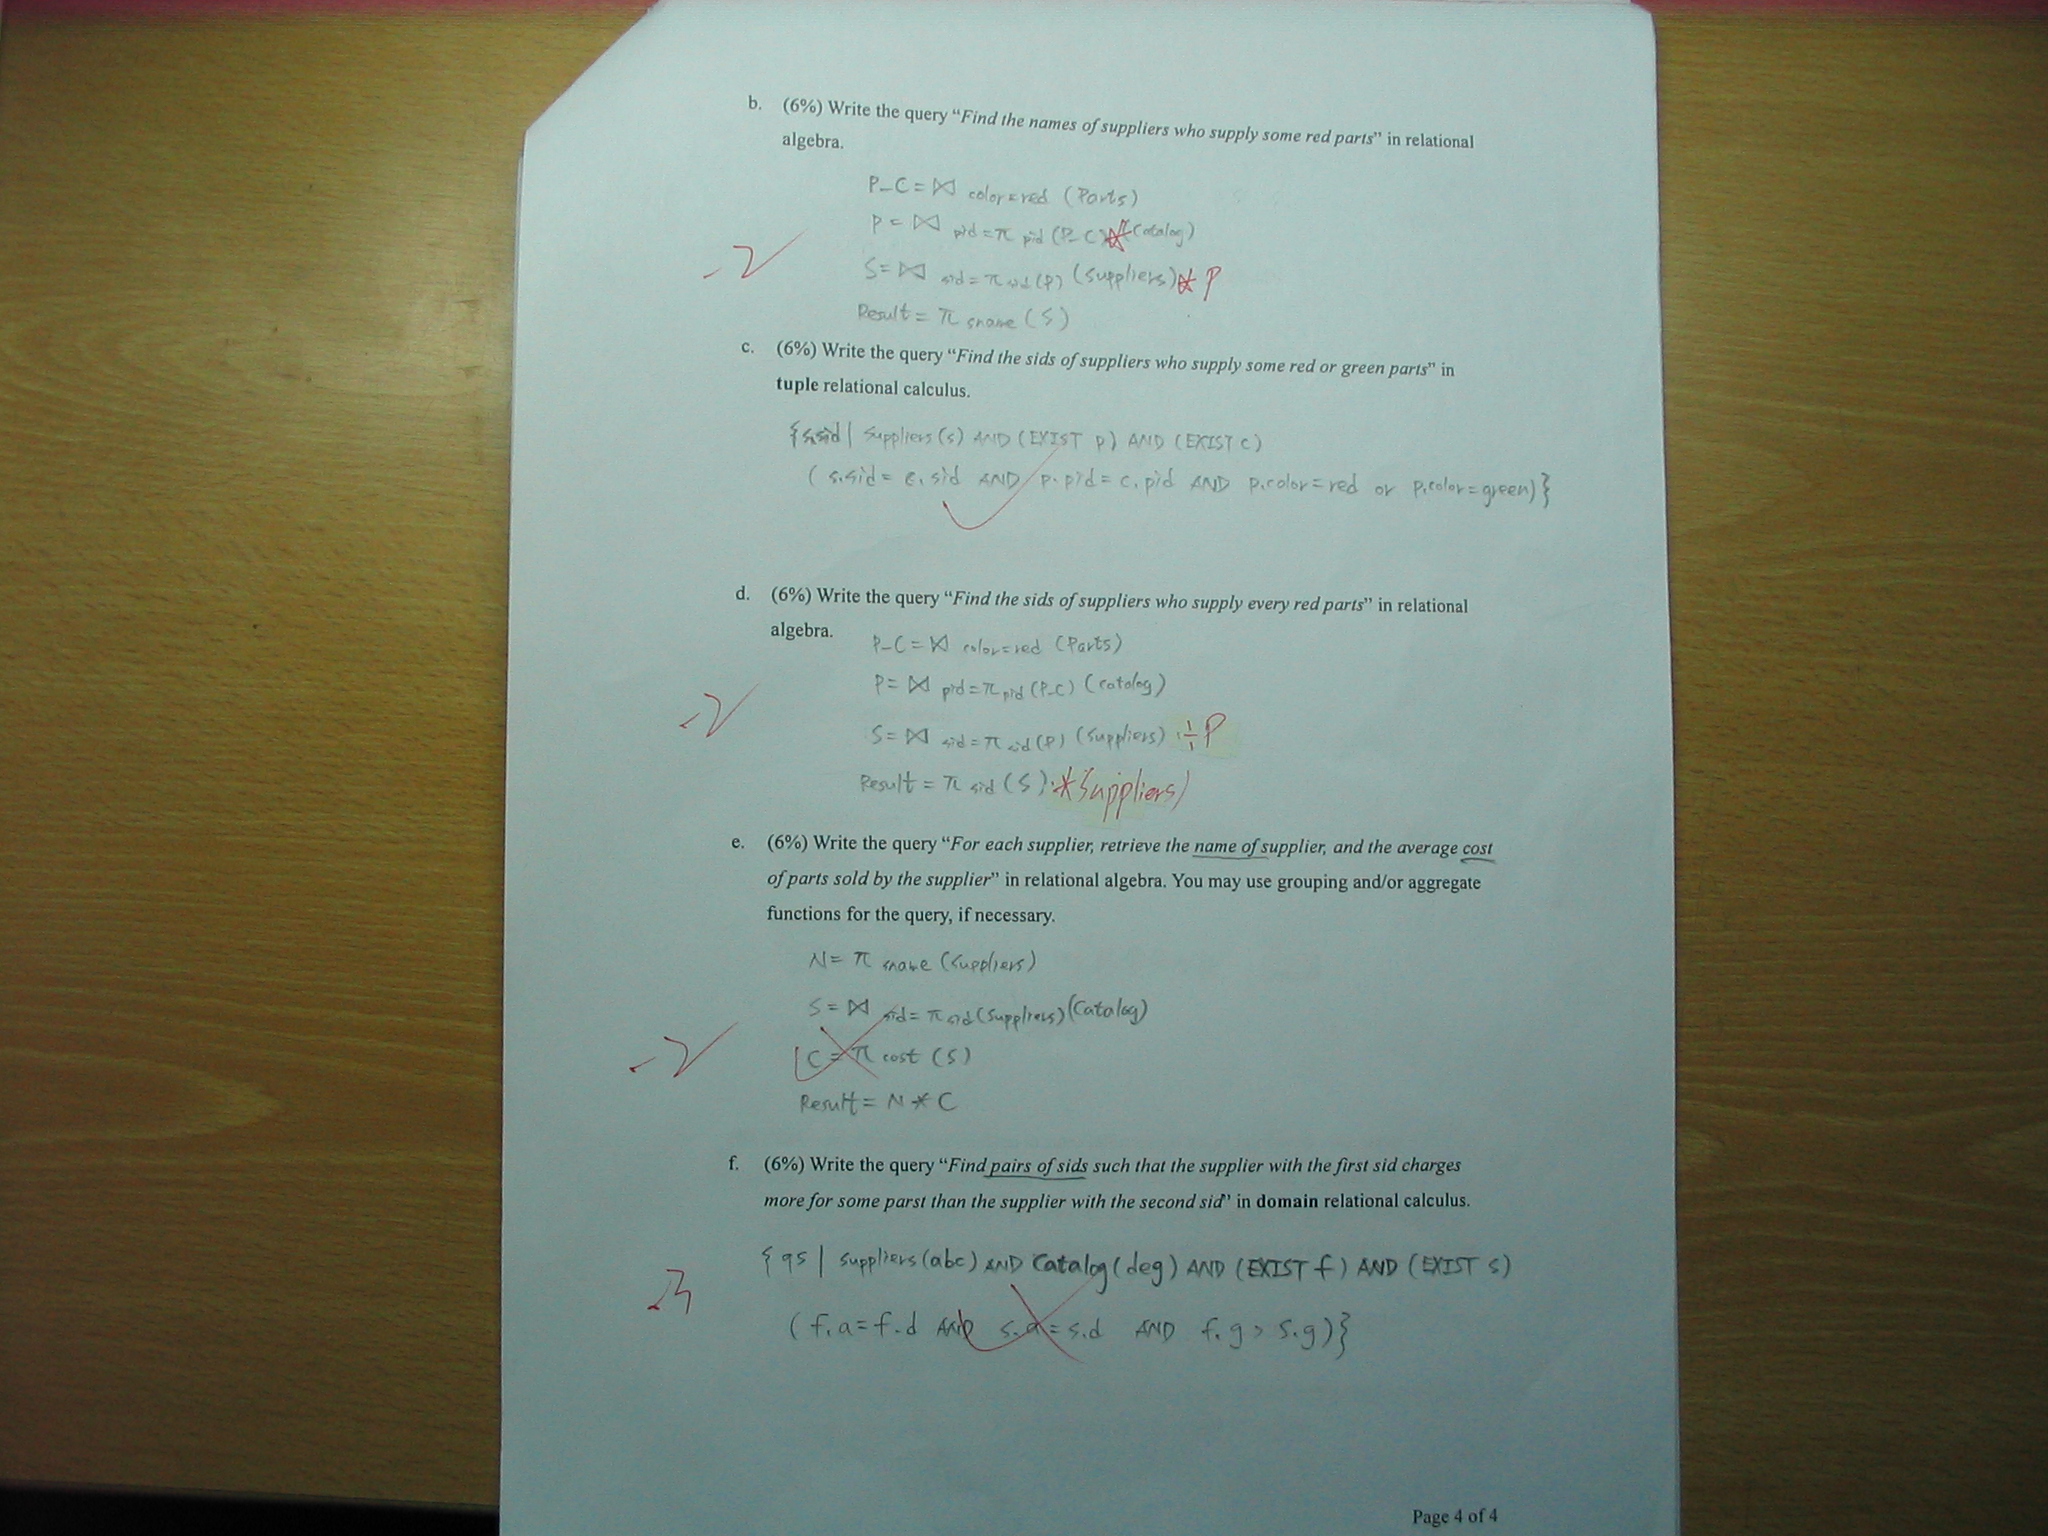 b. (6%) Write the query “Find the names of suppliers who supply some red parts” in relational
algebra.
P_C = ⋈ color=red (Parts)
P = ⋈ pid = π pid (P_C) * (Catalog)
-2
S = ⋈ sid = π sid (P) (Suppliers) * P
Result = π sname (S)
c. (6%) Write the query “Find the sids of suppliers who supply some red or green parts” in
tuple relational calculus.
{s.sid | Suppliers(s) AND (EXIST p) AND (EXIST c)
(s.sid = c.sid AND p.pid = c.pid AND p.color = red or p.color = green)}
d. (6%) Write the query “Find the sids of suppliers who supply every red parts” in relational
algebra.
P_C = ⋈ color=red (Parts)
P = ⋈ pid = π pid (P_C) (Catalog)
-2
S = ⋈ sid = π sid (P) (Suppliers) ÷ P
Result = π sid (S) * Suppliers)
e. (6%) Write the query “For each supplier, retrieve the name of supplier, and the average cost
of parts sold by the supplier” in relational algebra. You may use grouping and/or aggregate
functions for the query, if necessary.
N = π sname (Suppliers)
S = ⋈ sid = π sid (Suppliers) (Catalog)
-2
C = π cost (S)
Result = N * C
f. (6%) Write the query “Find pairs of sids such that the supplier with the first sid charges
more for some parst than the supplier with the second sid” in domain relational calculus.
{qs | Suppliers(abc) AND Catalog(deg) AND (EXIST f) AND (EXIST s)
-3
(f.a = f.d AND s.a = s.d AND f.g > s.g)}
Page 4 of 4